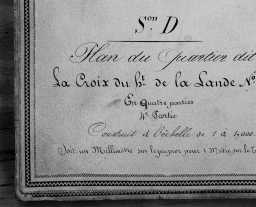 Son D
Plan du Quartier dit
La Croix du ht de la Lande No
En Quatre parties
4e Partie
Construit à l'échelle de 1 à 4000
Soit un Millimètre sur le papier pour 4 Mètres sur le T